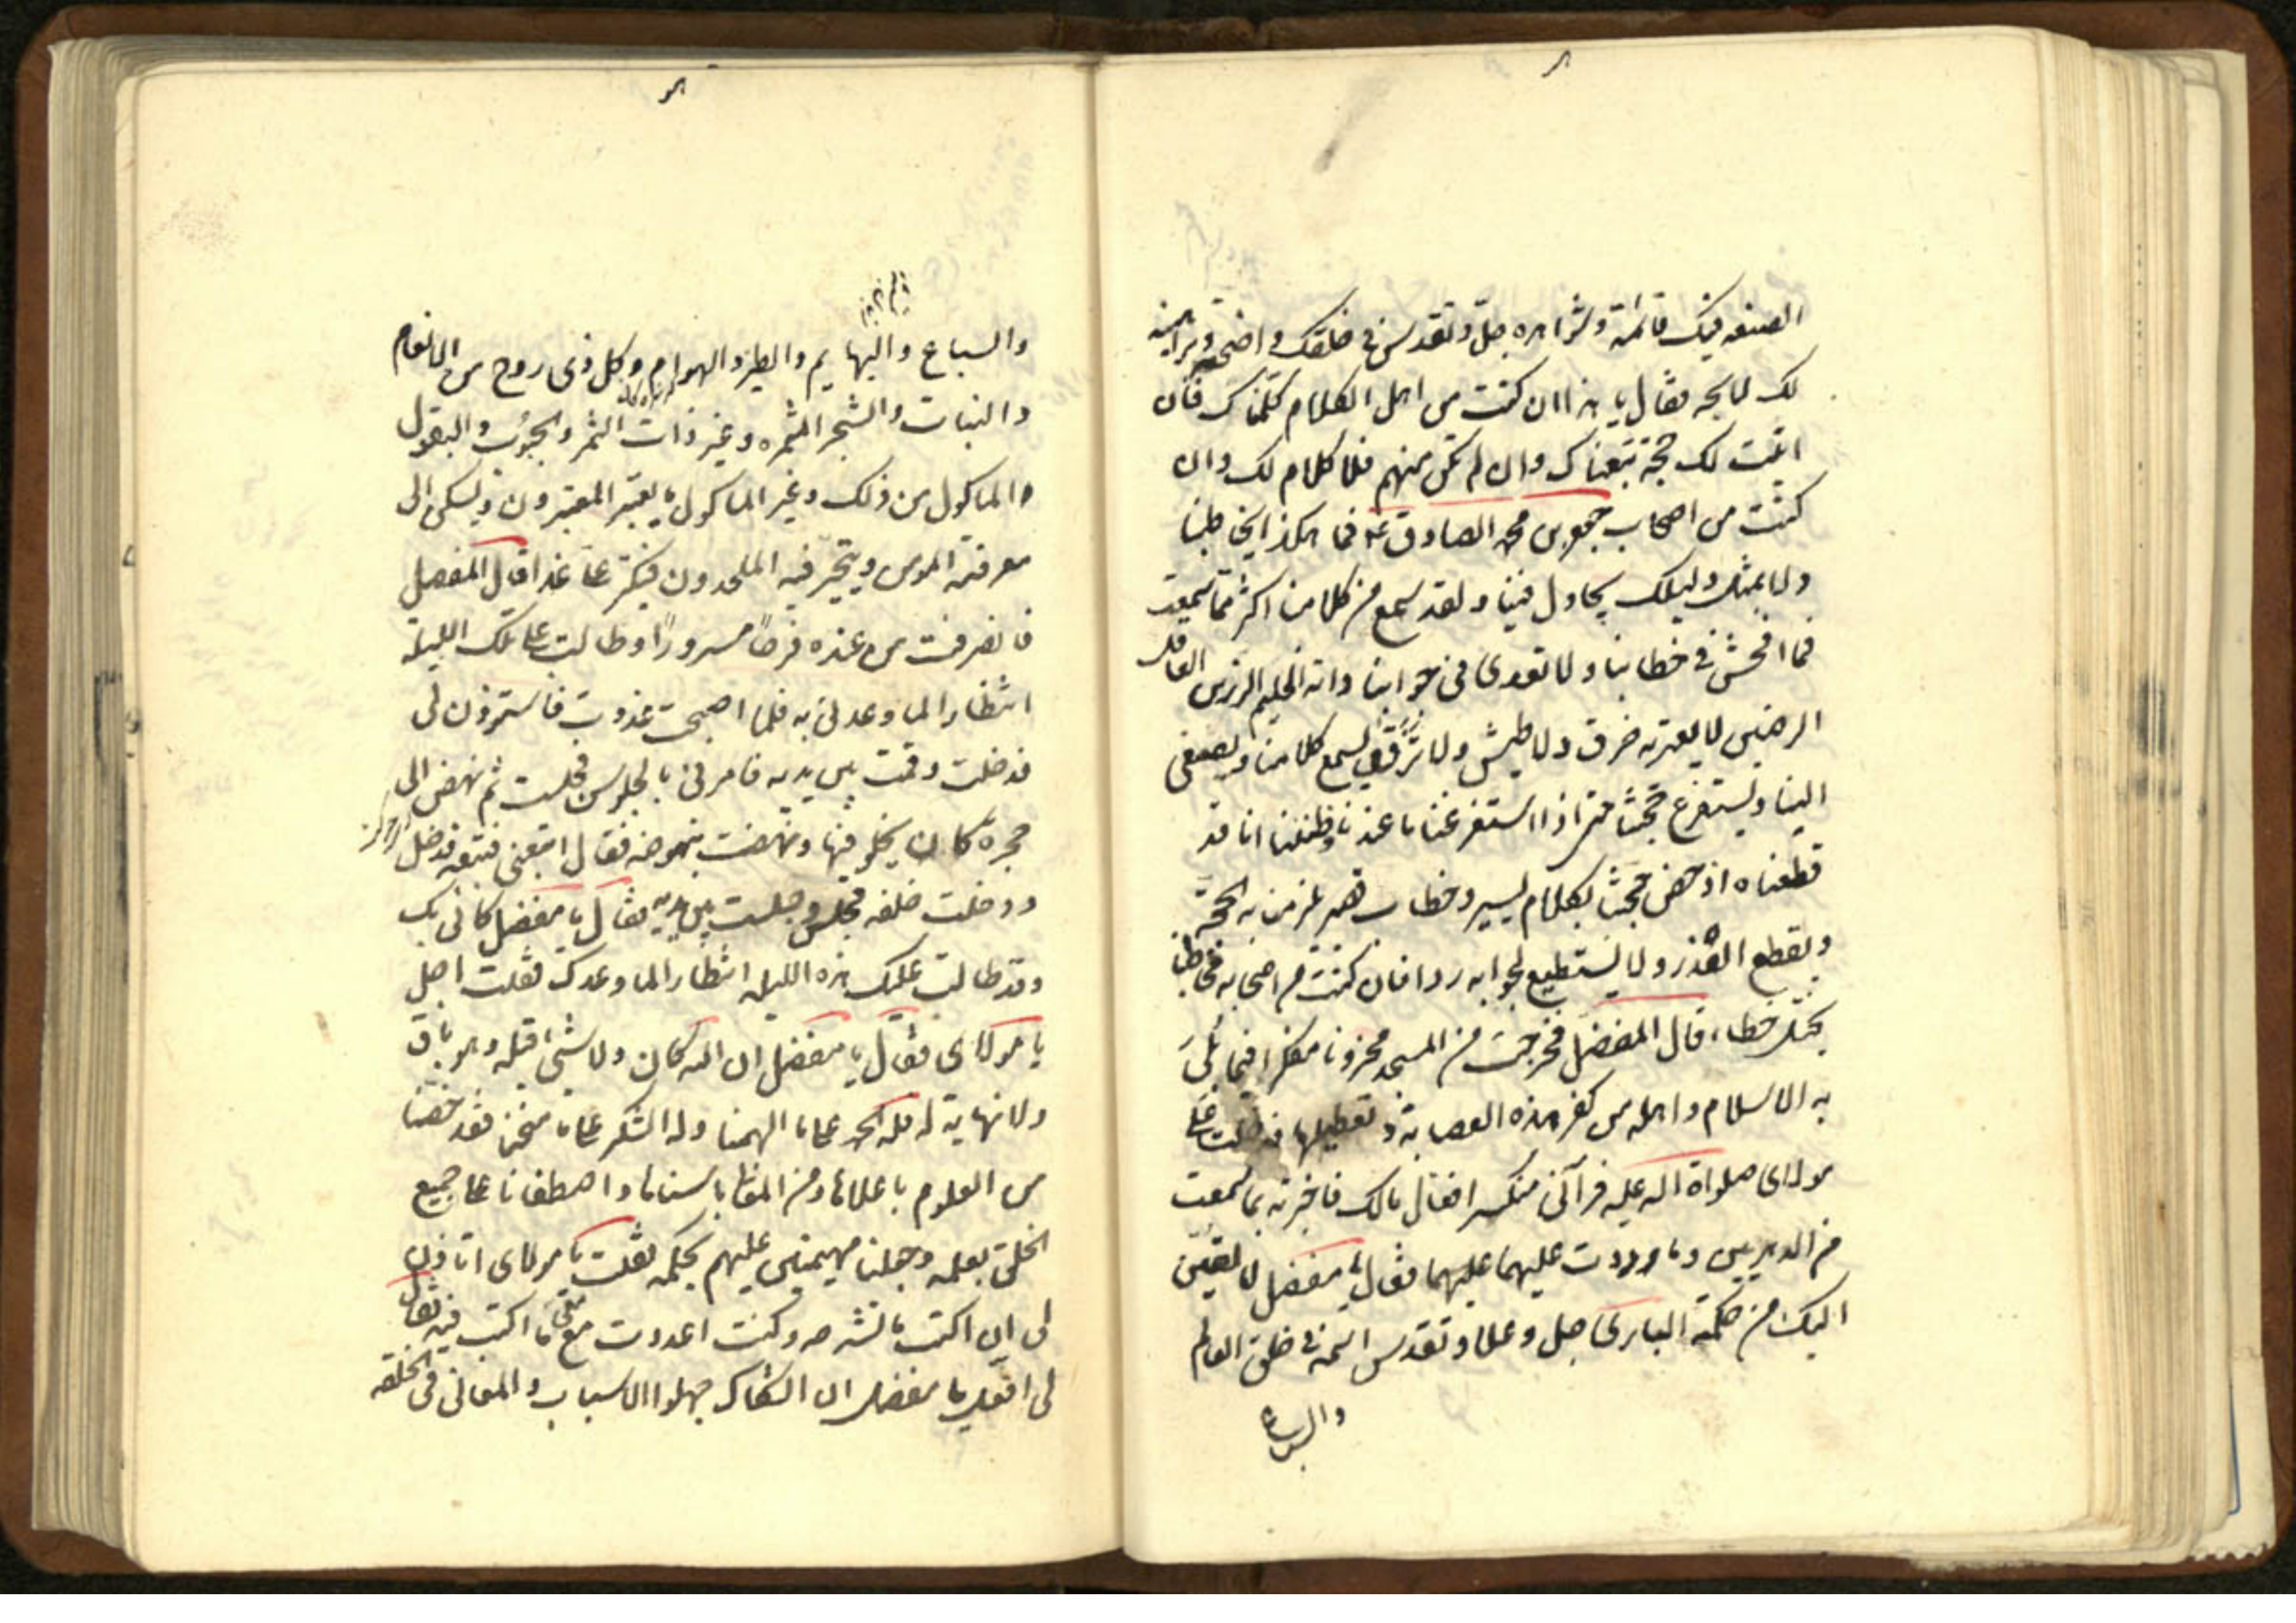 الصنعه فيك قائمة وشواهده جلّ وتقدس في خلقك واضحة وبراهينه
لك لائحه فقال يا هذا ان كنت من اهل الكلام كلمناك فان
اثبتت لك حجة تبعناك وان لم تكن منهم فلا كلام لك وان
كنت من اصحاب جعفر بن محمد الصادق ع فما هكذا يخاطبنا
ولا بمثل دليلك يجادل فينا ولقد سمع من كلامنا اكثر مما سمعت
فما افحش في خطابنا ولا تعدى في جوابنا وانه الحليم الرزين العاقل
الرصين لا يعتريه خرق ولا طيش ولا نزق يسمع كلامنا ويصغي
الينا ويستفرغ حجتنا حتى اذا استفرغنا ما عندنا وظننا انا قد
قطعناه ادحض حجتنا بكلام يسير وخطاب قصير يلزمنا به الحجة
ويقطع العذر ولا نستطيع لجوابه ردا فان كنت من اصحابه فخاطبنا
بمثل خطابه قال المفضل فخرجت من المسجد محزونا مفكرا فيما بلى
به الاسلام واهله من كفر هذه العصابة وتعطيلها فدخلت على
مولاى صلواة الله عليه فرآني منكسرا فقال مالك فاخبرته بما سمعت
من الدهريين وما رددت عليهما فقال يا مفضل لالقين
اليك من حكمة البارى جل وعلا وتقدس اسمه في خلق العالم
والسباع
والسباع والبهايم والطير والهوام وكل ذى روح من الانعام
والنبات والشجر المثمره وغير ذات الثمر والحبوب والبقول
والماكول من ذلك وغير الماكول ما يعتبر المعتبرون ويسكن الى
معرفته المومن ويتحير فيه الملحدون فبكر على غدا قال المفضل
فانصرفت من عنده فرحا مسرورا وطالت على تلك الليلة
انتظارا لما وعدني به فلما اصبحت غدوت فاستوذن لى
فدخلت وقمت بين يديه فامرني بالجلوس فجلست ثم نهض الى
حجرة كان يخلو فيها ونهضت بنهوضه فقال اتبعني فتبعته فدخل
ودخلت خلفه فجلس وجلست بين يديه فقال يا مفضل كاني بك
وقد طالت عليك هذه الليله انتظارا لما وعدك فقلت اجل
يا مولاى فقال يا مفضل ان الله كان ولا شئ قبله وهو باق
ولا نهاية له فله الحمد على ما الهمنا وله الشكر على ما منحنا فقد خصنا
من العلوم باعلاها ومن المعالي باسناها واصطفانا على جميع
الخلق بعلمه وجعلنا مهيمنين عليهم بحكمه فقلت يا مولاى اتاذن
لى ان اكتب ما تشرحه وكنت اعددت معى ما اكتب فيه فقال
لى افعل يا مفضل ان الشكاك جهلوا الاسباب والمعاني في الخلقه